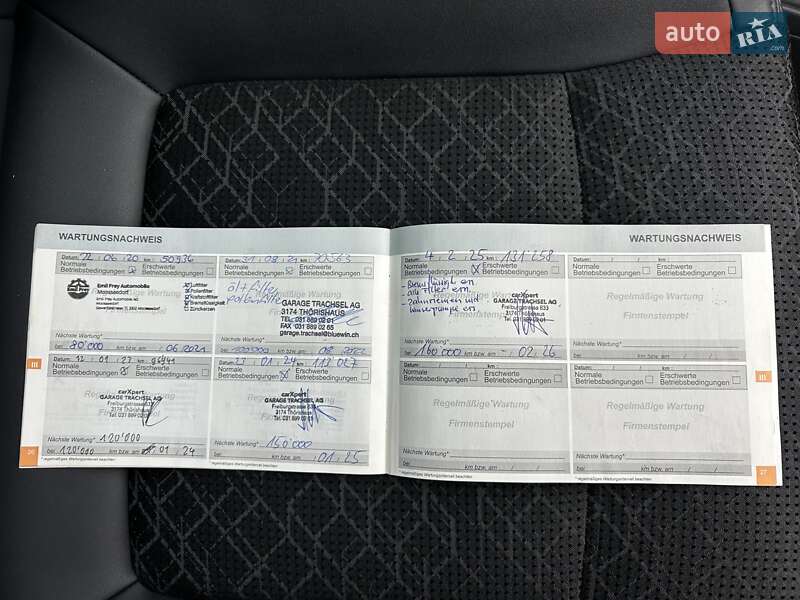 auto RIA .com
WARTUNGSNACHWEIS
Datum: 22.06.20 km: 50936
Normale Betriebsbedingungen
Erschwerte Betriebsbedingungen
Emil Frey Automobile
Moosseedorf
Emil Frey Automobile AG
Luftfilter
Pollenfilter
Kraftstofffilter
Bremsflüssigkeit
Zündkerzen
Nächste Wartung*
bei: 80'000 km bzw. am: 06.2021
Datum: 31.08.21 km: 70563
Normale Betriebsbedingungen
Erschwerte Betriebsbedingungen
öl + Filter
GARAGE TRACHSEL AG
3174 THÖRISHAUS
TEL. 031 889 02 01
FAX 031 889 02 65
garage.trachsel@bluewin.ch
Nächste Wartung*
bei: 100'000 km bzw. am: 08.2022
Datum: 12.01.23 km:
Normale Betriebsbedingungen
Erschwerte Betriebsbedingungen
carXpert
GARAGE TRACHSEL AG
Freiburgstrasse 633
3174 Thörishaus
Tel. 031 889 02 01
Nächste Wartung* 120'000
bei: 120'000 km bzw. am: 01.24
Datum: 23.01.24 km: 113'027
Normale Betriebsbedingungen
Erschwerte Betriebsbedingungen
carXpert
GARAGE TRACHSEL AG
Freiburgstrasse 633
3174 Thörishaus
Tel. 031 889 02 01
Nächste Wartung* 150'000
bei: km bzw. am: 01.25
* regelmäßiges Wartungsintervall beachten
III
26
WARTUNGSNACHWEIS
Datum: 4.2.25 km: 131'258
Normale Betriebsbedingungen
Erschwerte Betriebsbedingungen
- alle Filter ern.
- Zahnriemen und
Wasserpumpe ern
carXpert
GARAGE TRACHSEL AG
Freiburgstrasse 633
3174 Thörishaus
Tel. 031 889 02 01
Nächste Wartung*
bei: 160'000 km bzw. am: 02.26
Datum: / / km:
Normale Betriebsbedingungen
Erschwerte Betriebsbedingungen
Regelmäßige Wartung
Firmenstempel
Nächste Wartung*
bei: km bzw. am: / /
Datum: / / km:
Normale Betriebsbedingungen
Erschwerte Betriebsbedingungen
Regelmäßige Wartung
Firmenstempel
Nächste Wartung*
bei: km bzw. am: / /
Datum: / / km:
Normale Betriebsbedingungen
Erschwerte Betriebsbedingungen
Regelmäßige Wartung
Firmenstempel
Nächste Wartung*
bei: km bzw. am: / /
* regelmäßiges Wartungsintervall beachten
III
27